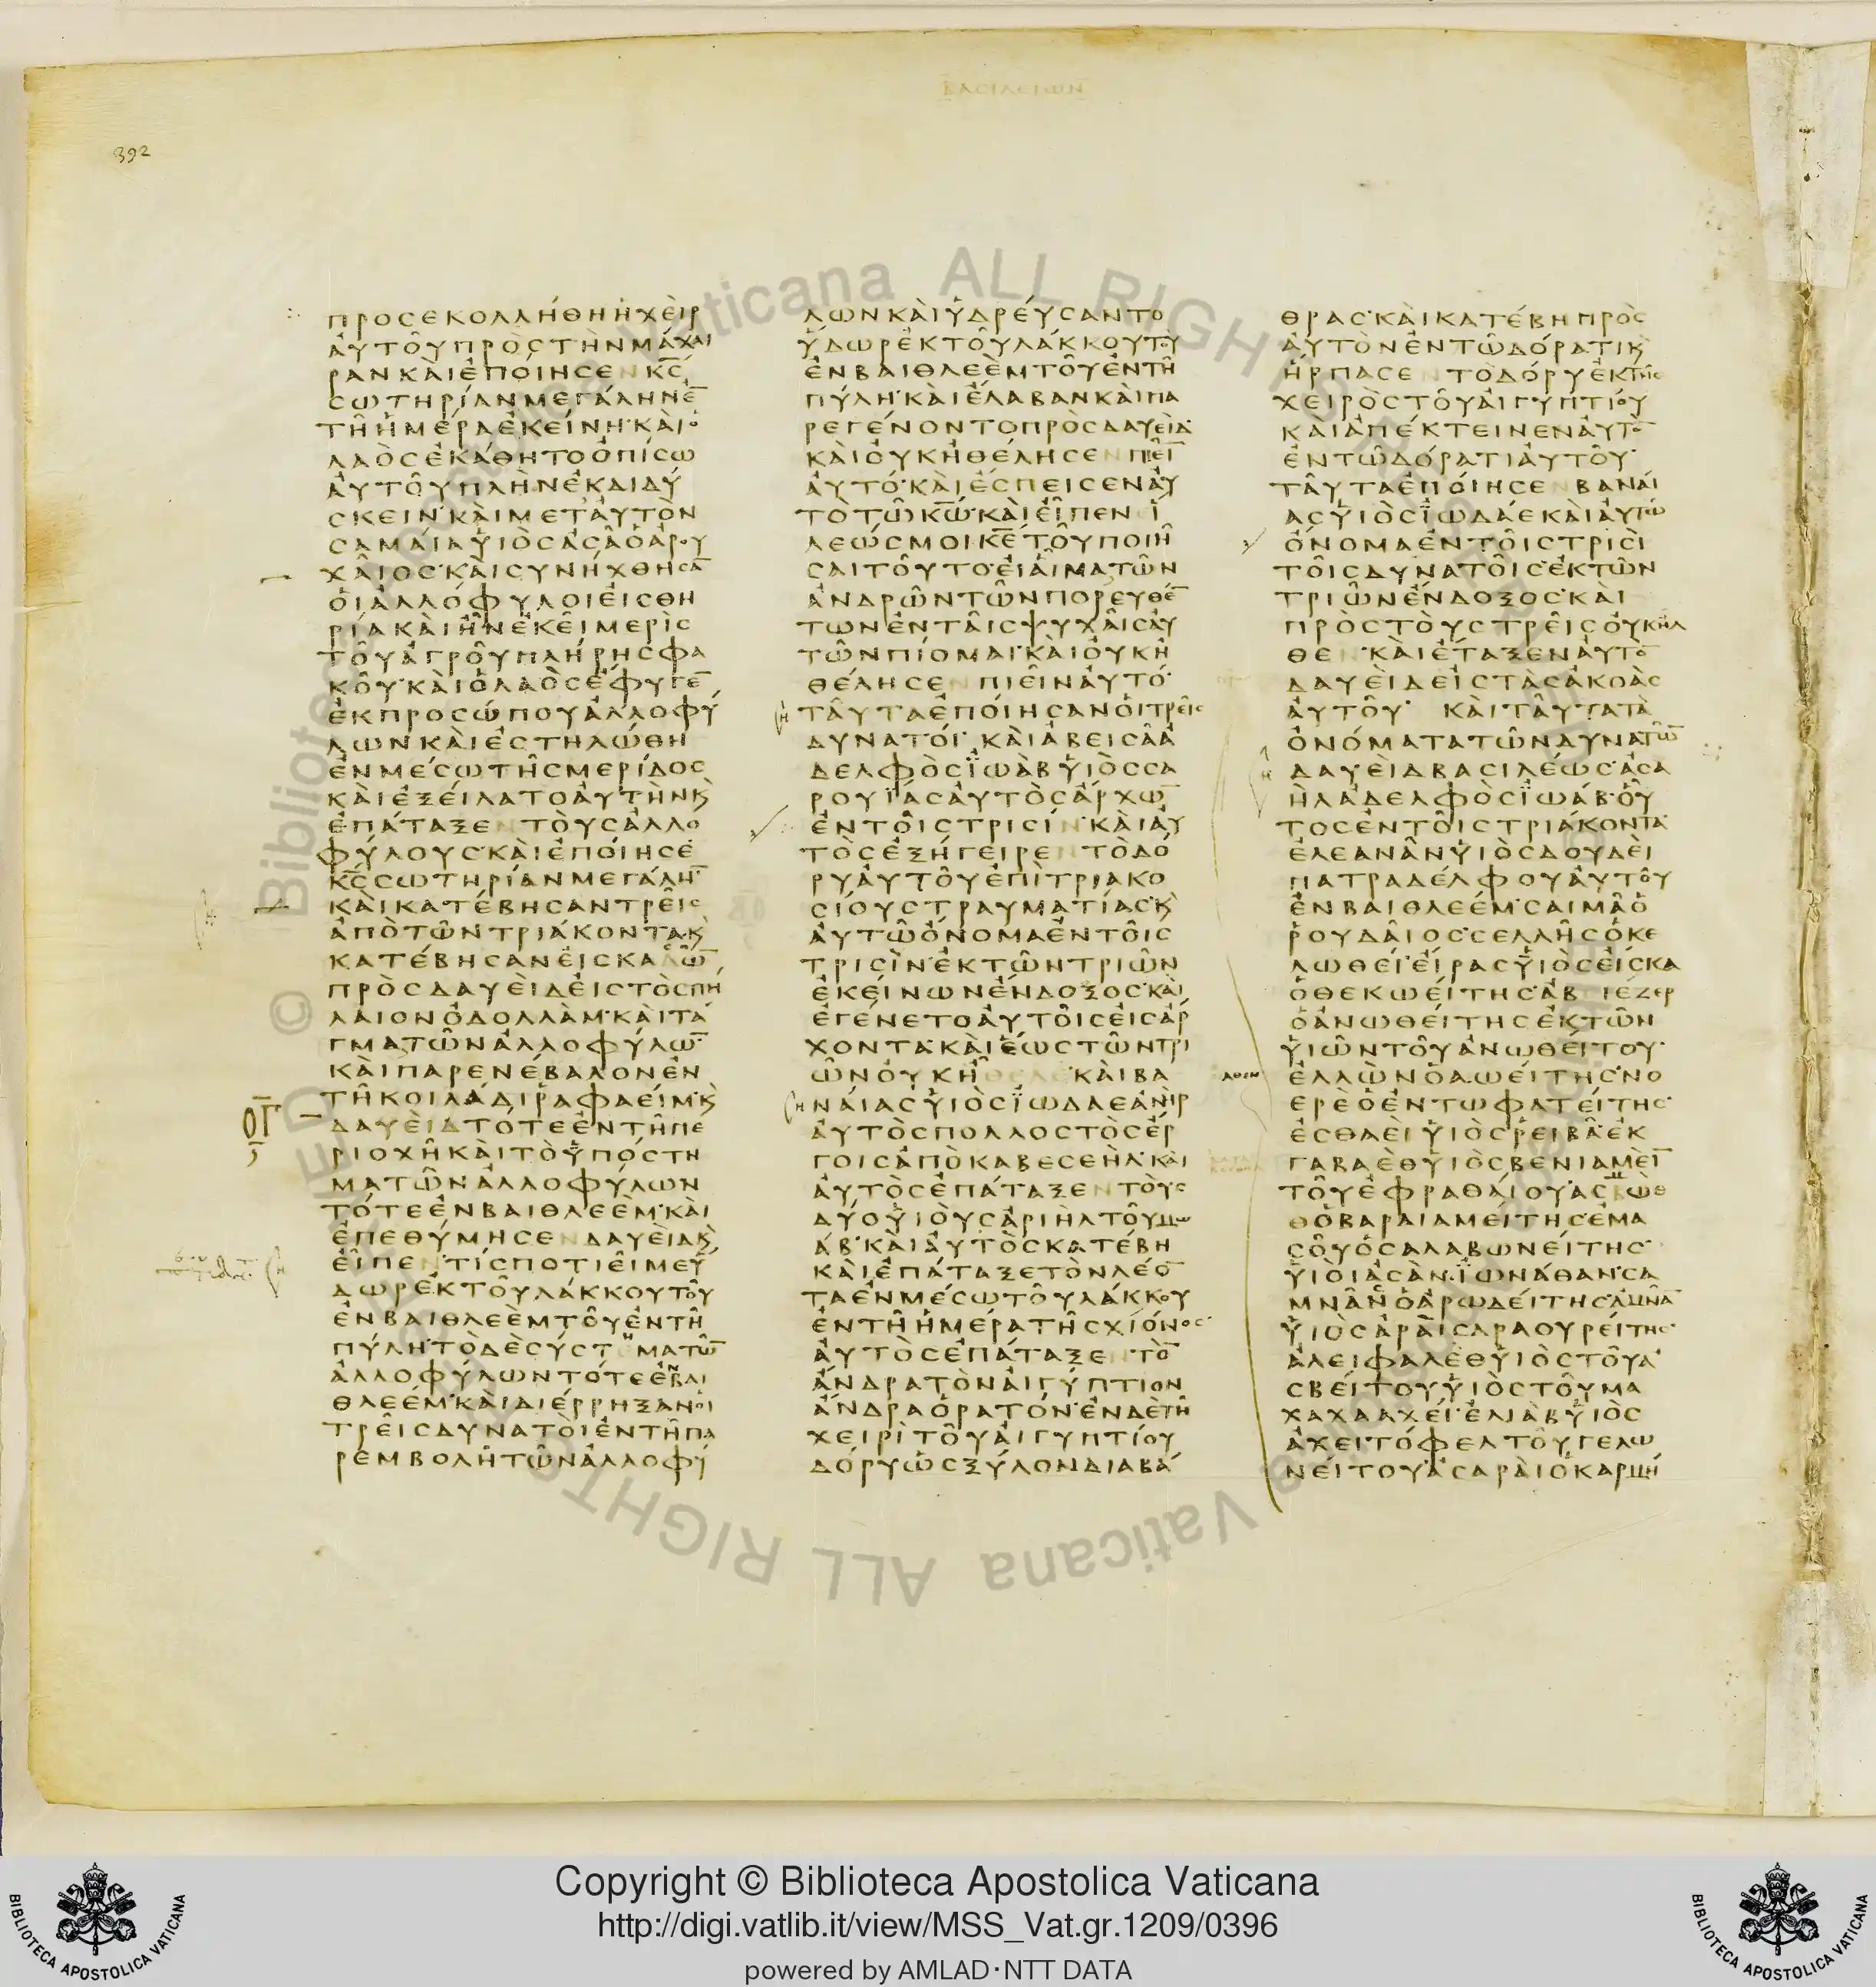 ΒΑΣΙΛΕΙΩΝ
392
ΠΡΟΣΕΚΟΛΛΗΘΗΗΧΕΙΡ
ΑΥΤΟΥΠΡΟΣΤΗΝΜΑΧΑΙ
ΡΑΝΚΑΙΕΠΟΙΗΣΕΝΚΣ
ΣΩΤΗΡΙΑΝΜΕΓΑΛΗΝΕ̅
ΤΗΗΜΕΡΑΕΚΕΙΝΗ·ΚΑΙΟ
ΛΑΟΣΕΚΑΘΗΤΟΟΠΙΣΩ
ΑΥΤΟΥΠΛΗΝΕΚΔΙΔΥ
ΣΚΕΙΝ·ΚΑΙΜΕΤΑΥΤΟΝ
ΣΑΜΑΙΑΥΙΟΣΑΣΑΟΑΡΟΥ
ΧΑΙΟΣ·ΚΑΙΣΥΝΗΧΘΗΣΑ̅
ΟΙΑΛΛΟΦΥΛΟΙΕΙΣΘΗ
ΡΙΑΚΑΙΗΝΕΚΕΙΜΕΡΙΣ
ΤΟΥΑΓΡΟΥΠΛΗΡΗΣΦΑ
ΚΟΥ·ΚΑΙΟΛΑΟΣΕΦΥΓΕ̅
ΕΚΠΡΟΣΩΠΟΥΑΛΛΟΦΥ
ΛΩΝΚΑΙΕΣΤΗΛΩΘΗ
ΕΝΜΕΣΩΤΗΣΜΕΡΙΔΟΣ
ΚΑΙΕΞΕΙΛΑΤΟΑΥΤΗΝϗ
ΕΠΑΤΑΞΕΝΤΟΥΣΑΛΛΟ
ΦΥΛΟΥΣ·ΚΑΙΕΠΟΙΗΣΕ
ΚΣΣΩΤΗΡΙΑΝΜΕΓΑΛΗ̅
ΚΑΙΚΑΤΕΒΗΣΑΝΤΡΕΙΣ
ΑΠΟΤΩΝΤΡΙΑΚΟΝΤΑϗ
ΚΑΤΕΒΗΣΑΝΕΙΣΚΑΔΩ̅
ΠΡΟΣΔΑΥΕΙΔΕΙΣΤΟΣΠΗ
ΛΑΙΟΝΟΔΟΛΛΑΜ·ΚΑΙΤΑ
ΓΜΑΤΩΝΑΛΛΟΦΥΛΩ̅
ΚΑΙΠΑΡΕΝΕΒΑΛΟΝΕΝ
ΤΗΚΟΙΛΑΔΙΡΑΦΑΕΙΜ·ϗ
ΟΓ
ΔΑΥΕΙΔΤΟΤΕΕΝΤΗΠΕ
ΡΙΟΧΗΚΑΙΤΟΥΠΟΣΤΗ
ΜΑΤΩΝΑΛΛΟΦΥΛΩΝ
ΤΟΤΕΕΝΒΑΙΘΛΕΕΜ·ΚΑΙ
ΕΠΕΘΥΜΗΣΕΝΔΑΥΕΙΔϗ
ΕΙΠΕΝΤΙΣΠΟΤΙΕΙΜΕΥ
ΔΩΡΕΚΤΟΥΛΑΚΚΟΥΤΟΥ
ΕΝΒΑΙΘΛΕΕΜΤΟΥΕΝΤΗ
ΠΥΛΗ·ΤΟΔΕΣΥΣΤΗΜΑΤΩ̅
ΑΛΛΟΦΥΛΩΝΤΟΤΕΕΝΒΑΙ
ΘΛΕΕΜ·ΚΑΙΔΙΕΡΡΗΞΑΝΟΙ
ΤΡΕΙΣΔΥΝΑΤΟΙΕΝΤΗΠΑ
ΡΕΜΒΟΛΗΤΩΝΑΛΛΟΦΥ
ΛΩΝΚΑΙΥΔΡΕΥΣΑΝΤΟ
ΥΔΩΡΕΚΤΟΥΛΑΚΚΟΥΤΟΥ
ΕΝΒΑΙΘΛΕΕΜΤΟΥΕΝΤΗ
ΠΥΛΗ·ΚΑΙΕΛΑΒΑΝΚΑΙΠΑ
ΡΕΓΕΝΟΝΤΟΠΡΟΣΔΑΥΕΙΔ·
ΚΑΙΟΥΚΗΘΕΛΗΣΕΝΠΙΕΙ̅
ΑΥΤΟ·ΚΑΙΕΣΠΕΙΣΕΝΑΥ
ΤΟΤΩΚΩ·ΚΑΙΕΙΠΕΝΙ
ΛΕΩΣΜΟΙΚΕΤΟΥΠΟΙΗ
ΣΑΙΤΟΥΤΟ·ΕΙΑΙΜΑΤΩΝ
ΑΝΔΡΩΝΤΩΝΠΟΡΕΥΘΕ̅
ΤΩΝΕΝΤΑΙΣΨΥΧΑΙΣΑΥ
ΤΩΝΠΙΟΜΑΙ·ΚΑΙΟΥΚΗ
ΘΕΛΗΣΕΝΠΙΕΙΝΑΥΤΟ·
ΤΑΥΤΑΕΠΟΙΗΣΑΝΟΙΤΡΕΙΣ
ΔΥΝΑΤΟΙ·ΚΑΙΑΒΕΙΣΑΑ
ΔΕΛΦΟΣΪΩΑΒΥΙΟΣΣΑ
ΡΟΥΪΑΣΑΥΤΟΣΑΡΧΩ̅
ΕΝΤΟΙΣΤΡΙΣΙΝ·ΚΑΙΑΥ
ΤΟΣΕΞΗΓΕΙΡΕΝΤΟΔΟ
ΡΥΑΥΤΟΥΕΠΙΤΡΙΑΚΟ
ΣΙΟΥΣΤΡΑΥΜΑΤΙΑΣ·ϗ
ΑΥΤΩΟΝΟΜΑΕΝΤΟΙΣ
ΤΡΙΣΙΝ·ΕΚΤΩΝΤΡΙΩΝ
ΕΚΕΙΝΩΝΕΝΔΟΞΟΣ·ΚΑΙ
ΕΓΕΝΕΤΟΑΥΤΟΙΣΕΙΣΑΡ
ΧΟΝΤΑ·ΚΑΙΕΩΣΤΩΝΤΡΙ
ΩΝΟΥΚΗΛΘΕ·ΚΑΙΒΑ
ΝΑΙΑΣΥΙΟΣΪΩΔΑΕΑΝΗΡ
ΑΥΤΟΣΠΟΛΛΟΣΤΟΣΕΡ
ΓΟΙΣΑΠΟΚΑΒΕΣΕΗΛ·ΚΑΙ
ΑΥΤΟΣΕΠΑΤΑΞΕΝΤΟΥΣ
ΔΥΟΥΙΟΥΣΑΡΙΗΛΤΟΥΜΩ
ΑΒ·ΚΑΙΑΥΤΟΣΚΑΤΕΒΗ
ΚΑΙΕΠΑΤΑΞΕΤΟΝΛΕΟ̅
ΤΑΕΝΜΕΣΩΤΟΥΛΑΚΚΟΥ
ΕΝΤΗΗΜΕΡΑΤΗΣΧΙΟΝΟΣ·
ΑΥΤΟΣΕΠΑΤΑΞΕΝΤΟ̅
ΑΝΔΡΑΤΟΝΑΙΓΥΠΤΙΟΝ
ΑΝΔΡΑΟΡΑΤΟΝ·ΕΝΔΕΤΗ
ΧΕΙΡΙΤΟΥΑΙΓΥΠΤΙΟΥ
ΔΟΡΥΩΣΞΥΛΟΝΔΙΑΒΑ
ΘΡΑΣ·ΚΑΙΚΑΤΕΒΗΠΡΟΣ
ΑΥΤΟΝΕΝΤΩΔΟΡΑΤΙϗ
ΗΡΠΑΣΕΝΤΟΔΟΡΥΕΚΤΗΣ
ΧΕΙΡΟΣΤΟΥΑΙΓΥΠΤΙΟΥ
ΚΑΙΑΠΕΚΤΕΙΝΕΝΑΥΤΟ̅
ΕΝΤΩΔΟΡΑΤΙΑΥΤΟΥ·
ΤΑΥΤΑΕΠΟΙΗΣΕΝΒΑΝΑΙ
ΑΣΥΙΟΣΪΩΔΑΕΚΑΙΑΥΤΩ
ΟΝΟΜΑΕΝΤΟΙΣΤΡΙΣΙ
ΤΟΙΣΔΥΝΑΤΟΙΣ·ΕΚΤΩΝ
ΤΡΙΩΝΕΝΔΟΞΟΣ·ΚΑΙ
ΠΡΟΣΤΟΥΣΤΡΕΙΣΟΥΚΗΛ
ΘΕΝ·ΚΑΙΕΤΑΞΕΝΑΥΤΟ̅
ΔΑΥΕΙΔΕΙΣΤΑΣΑΚΟΑΣ
ΑΥΤΟΥ· ΚΑΙΤΑΥΤΑΤΑ
ΟΝΟΜΑΤΑΤΩΝΔΥΝΑΤΩ̅
ΔΑΥΕΙΔΒΑΣΙΛΕΩΣ·ΑΣΑ
ΗΛΑΔΕΛΦΟΣΪΩΑΒ·ΟΥ
ΤΟΣΕΝΤΟΙΣΤΡΙΑΚΟΝΤΑ·
ΕΛΕΑΝΑΝΥΙΟΣΔΟΥΔΕΙ
ΠΑΤΡΑΔΕΛΦΟΥΑΥΤΟΥ
ΕΝΒΑΙΘΛΕΕΜ·ΣΑΙΜΑΟ
ΡΟΥΔΑΙΟΣ·ΣΕΛΛΗΣΟΚΕ
ΛΩΘΕΙ·ΕΙΡΑΣΥΙΟΣΕΙΣΚΑ
ΟΘΕΚΩΕΙΤΗΣ·ΑΒΙΕΖΕΡ
ΟΑΝΩΘΕΙΤΗΣΕΚΤΩΝ
ΥΙΩΝΤΟΥΑΝΩΘΕΙΤΟΥ·
ΕΛΛΩΝΟΑΩΕΙΤΗΣ·ΝΟ
ΕΡΕΟΕΝΤΩΦΑΤΕΙΤΗΣ·
ΕΣΘΑΕΙΥΙΟΣΡΕΙΒΑ·ΕΚ
ΓΑΒΑΕΘΥΙΟΣΒΕΝΙΑΜΕΙ̅
ΤΟΥΕΦΡΑΘΑΙΟΥ·ΑΣΒΩΘ
ΟΒΑΡΔΙΑΜΕΙΤΗΣ·ΕΜΑ
ΣΟΥΟΣΑΛΑΒΩΝΕΙΤΗΣ·
ΥΙΟΙΑΣΑΝ·ΪΩΝΑΘΑΝ·ΣΑ
ΜΝΑΝΟΑΡΩΔΕΙΤΗΣ·ΑΜΝΑ̅
ΥΙΟΣΑΡΑΙΣΑΡΑΟΥΡΕΙΤΗΣ·
ΑΛΕΙΦΑΛΕΘΥΙΟΣΤΟΥΑ
ΣΒΕΙΤΟΥΥΙΟΣΤΟΥΜΑ
ΧΑΧΑΑΧΕΙ·ΕΛΙΑΒΥΙΟΣ
ΑΧΕΙΤΟΦΕΛΤΟΥΓΕΛΩ
ΝΕΙΤΟΥ·ΑΣΑΡΑΙΟΚΑΡΜΗ
© Biblioteca Vaticana ALL RIGHTS
Vaticana ALL RIGHTS
Copyright © Biblioteca Apostolica Vaticana
http://digi.vatlib.it/view/MSS_Vat.gr.1209/0396
powered by AMLAD·NTT DATA
BIBLIOTECA APOSTOLICA VATICANA
BIBLIOTECA APOSTOLICA VATICANA